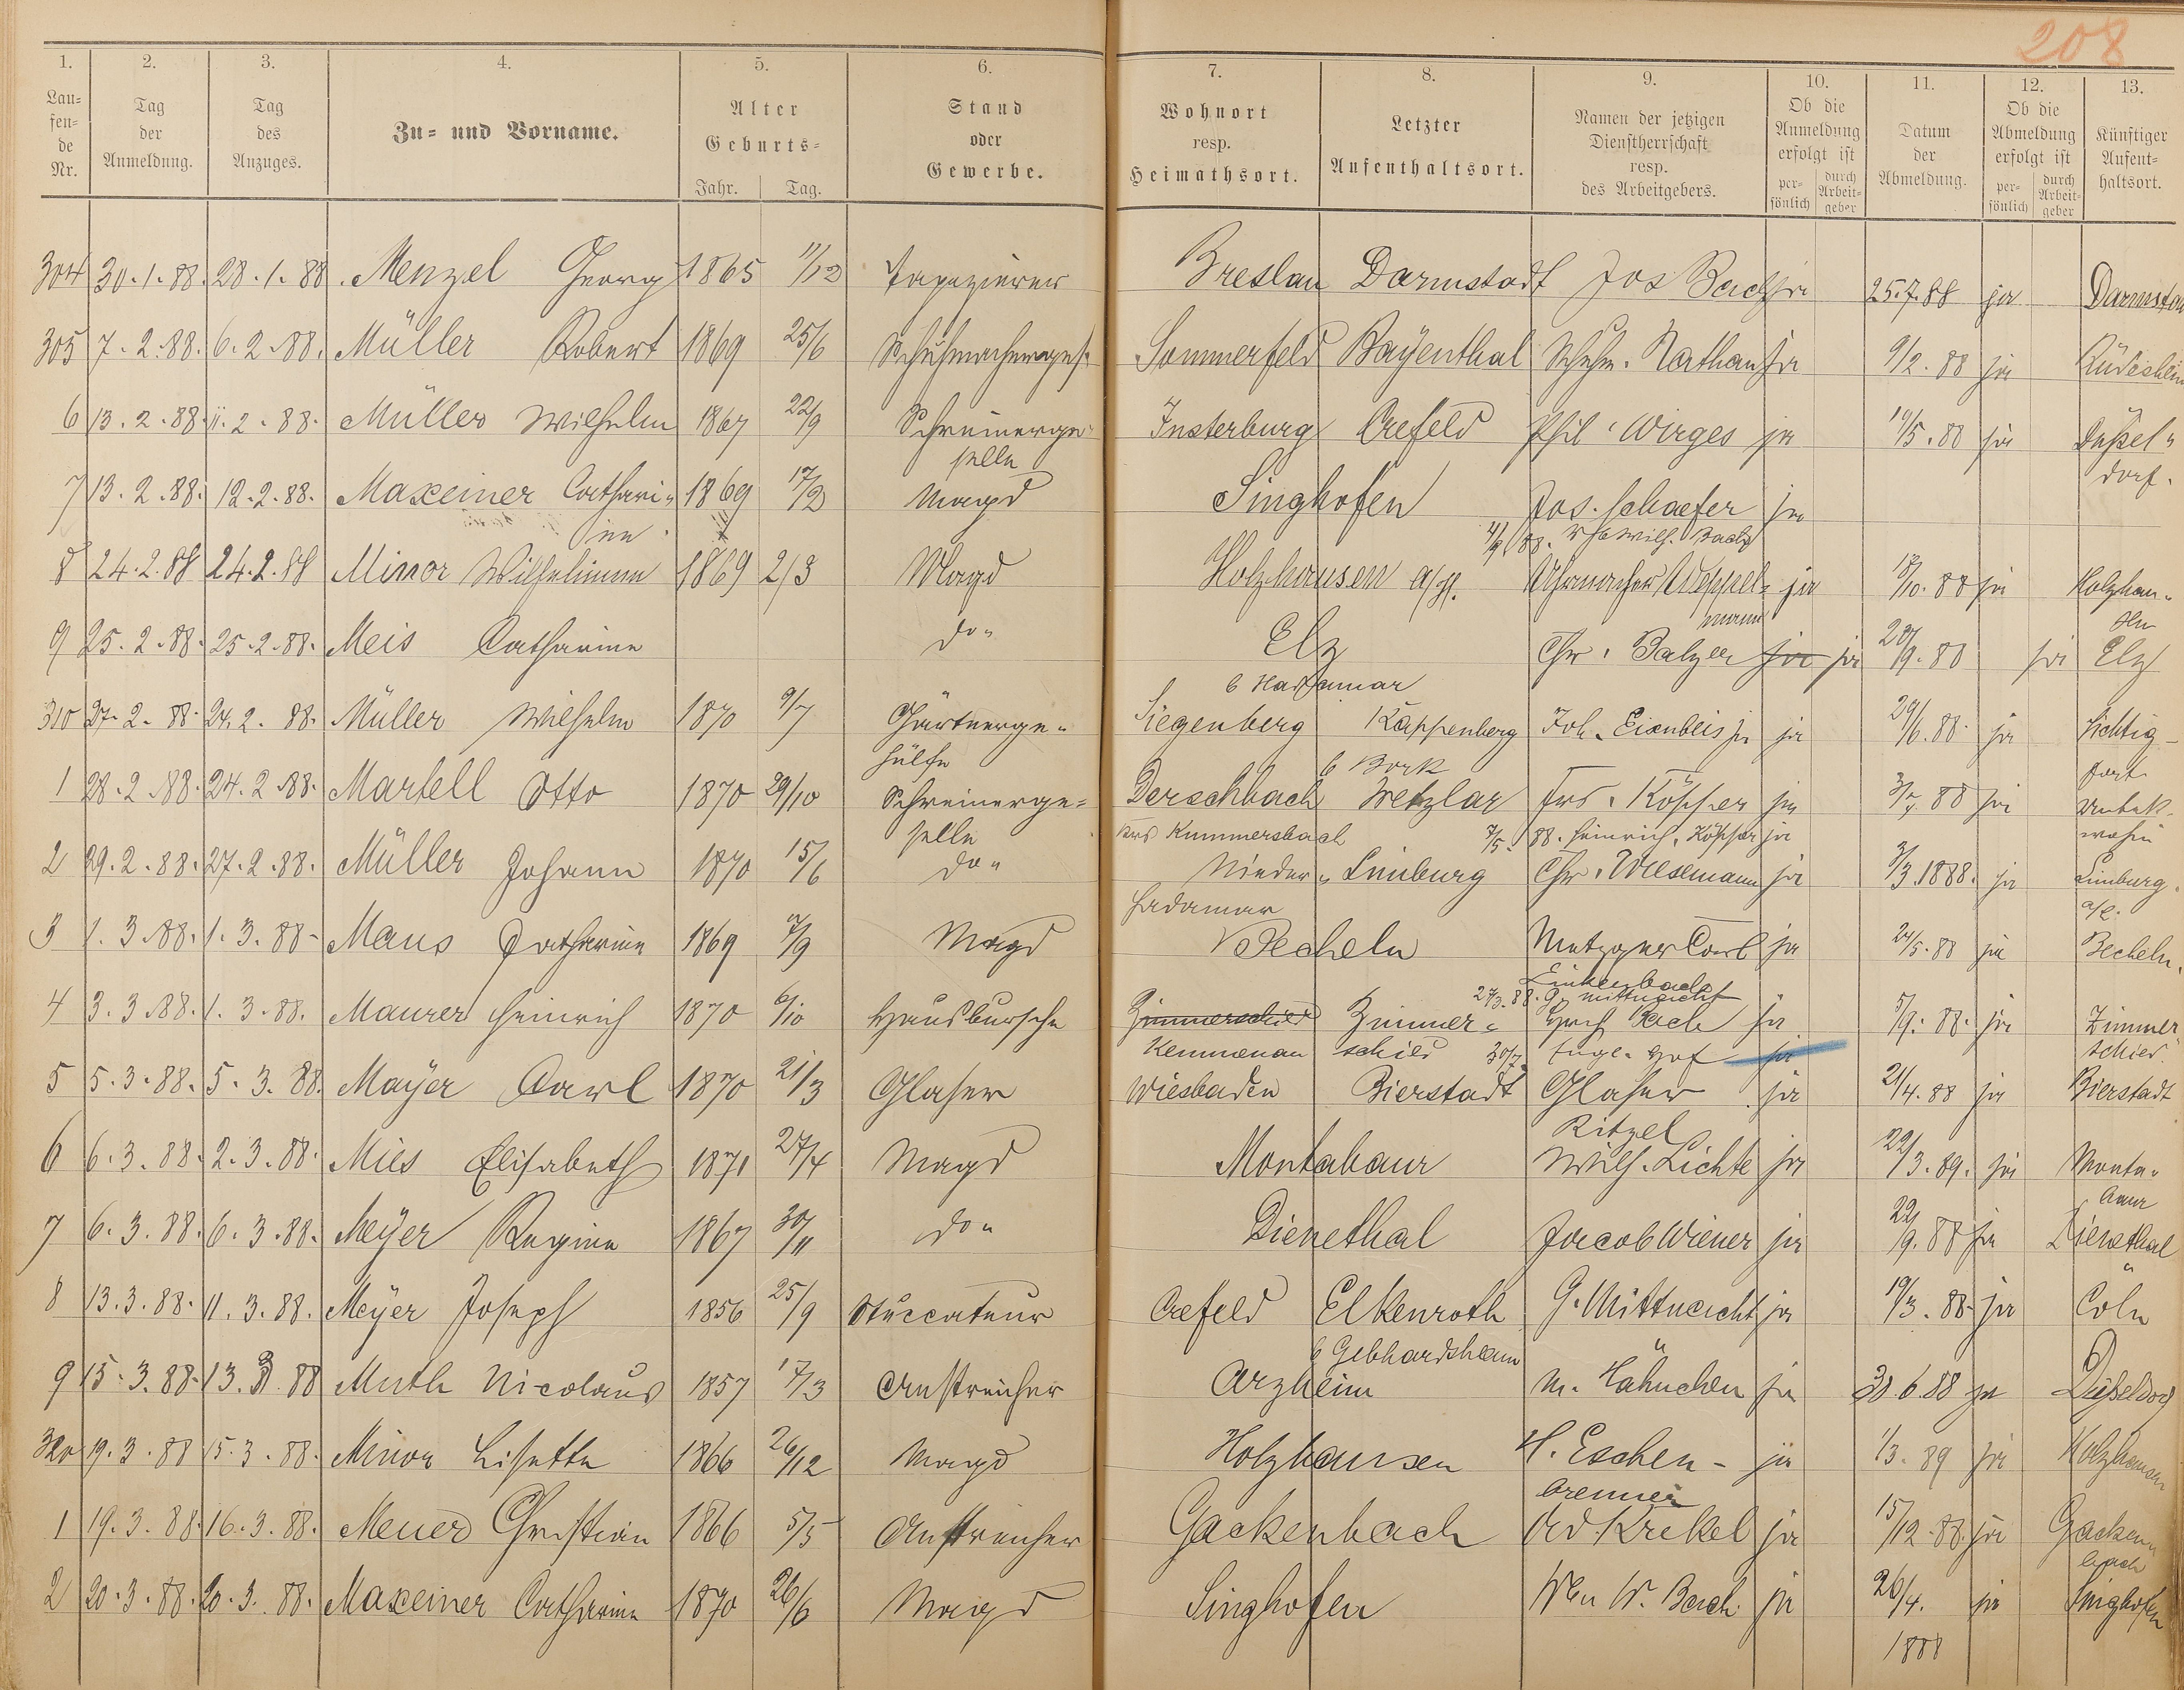 208
1. 2. 3. 4. 5. 6. 7. 8. 9. 10. 11. 12. 13.
Lau=fen=de Nr. Tag der Anmeldung. Tag des Anzuges. Zu= und Vorname. Alter Geburts= Jahr. Tag. Stand oder Gewerbe. Wohnort resp. Heimathsort. Letzter Aufenthaltsort. Namen der jetzigen Dienstherrschaft resp. des Arbeitgebers. Ob die Anmeldung erfolgt ist per=sönlich durch Arbeit=geber Datum der Abmeldung. Ob die Abmeldung erfolgt ist per=sönlich durch Arbeit=geber Künftiger Aufent=haltsort.
304 30.1.88. 28.1.88. Menzel Georg 1865 11/12 Tapezierer Breslau Darmstadt Jos Bach ja 25.7.88 ja Darmstad
305 7.2.88. 6.2.88. Müller Robert 1869 25/6 Schuhmacherges. Sommerfeld Bayenthal Schuhm. Nathan ja 9/2.88 ja Rüdesheim
6 13.2.88. 11.2.88. Müller Wilhelm 1867 22/9 Schreinerge- Insterburg Crefeld Phil. Wirges ja 19/5.88 ja Düssel=
selle dorf.
7 13.2.88. 12.2.88. Maxeiner Cathari= 1869 17/2 Magd Singhofen Jos. Schaefer ja
ne 4/9 88. Wilh. Bach
8 24.2.88 24.2.88 Minor Wilhelmine 1869 2/3 Magd Holzhausen a/H. Uhrmacher Weppel= ja 18/10.88 ja Holzhau=
mann sen
9 25.2.88. 25.2.88. Meis Catharine do= Elz Chr. Balzer ja ja 28/9.88 ja Elz
b Hadamar
310 27.2.88. 24.2.88. Müller Wilhelm 1870 9/7 Gärtnerge= Siegenberg Kappenberg Joh. Eisenbeis jr. ja 29/6.88. ja Lichtig-
hülfe b Bork fort.
1 28.2.88. 24.2.88. Martell Otto 1870 29/10 Schreinerge= Derschbach Wetzlar Frd. Köpper ja 3/7.88 ja unbek.
selle Krs Kummersbach 7/5. 88. Heinrich. Köpper ja wohin
2 29.2.88. 27.2.88. Müller Johann 1870 15/6 do= Nieder= Limburg Chr. Wiesemann ja 3/3.1888. ja Limburg
hadamar a/L.
3 1.3.88. 1.3.88. Maus Catharine 1869 7/9 Magd Becheln Metzger Carl ja 24/5.88 ja Becheln.
Linkenbach
27/3.88. G. Mittnacht
4 3.3.88. 1.3.88. Maurer Heinrich 1870 6/10 Hausbursche Zimmerschied Zimmer= Bach ja 5/9.88. ja Zimmer
Kemmenau schied 30/7. Engl. Hof ja schied.
5 5.3.88. 5.3.88. Mayer Carl 1870 21/3 Glaser Wiesbaden Bierstadt Glaser ja 21/4.88 ja Bierstadt
Ritzel
6 6.3.88. 2.3.88. Mies Elisabeth 1871 27/4 Magd Montabaur Wilh. Lichte ja 29/3.89. ja Monta=
baur
7 6.3.88. 6.3.88. Meyer Regine 1867 30/11 do= Dienethal Jacob Wiener ja 22/9.88 ja Dienethal
8 13.3.88. 11.3.88. Meyer Joseph 1856 25/9 Stuccateur Crefeld Elkenroth G. Mittnacht ja 19/3.88. ja Cöln
b Gebhardshain
9 15.3.88. 13.3.88 Muth Nicolaus 1857 17/3 Anstreicher Arzheim M. Hähnchen ja 30.6.88 ja Düsseldorf
320 19.3.88 15.3.88. Minor Lisette 1866 26/12 Magd Holzhausen H. Eschen- ja 1/3.89 ja Holzhausen
brenner
1 19.3.88 16.3.88. Meuer Christian 1866 5/5 Anstreicher Gackenbach Ad Krekel ja 15/12.88. ja Gacken=
bach
2 20.3.88. 20.3.88. Maxeiner Catharine 1870 26/6 Magd Singhofen Wwe W. Bach ja 26/4. ja Singhofen
1888